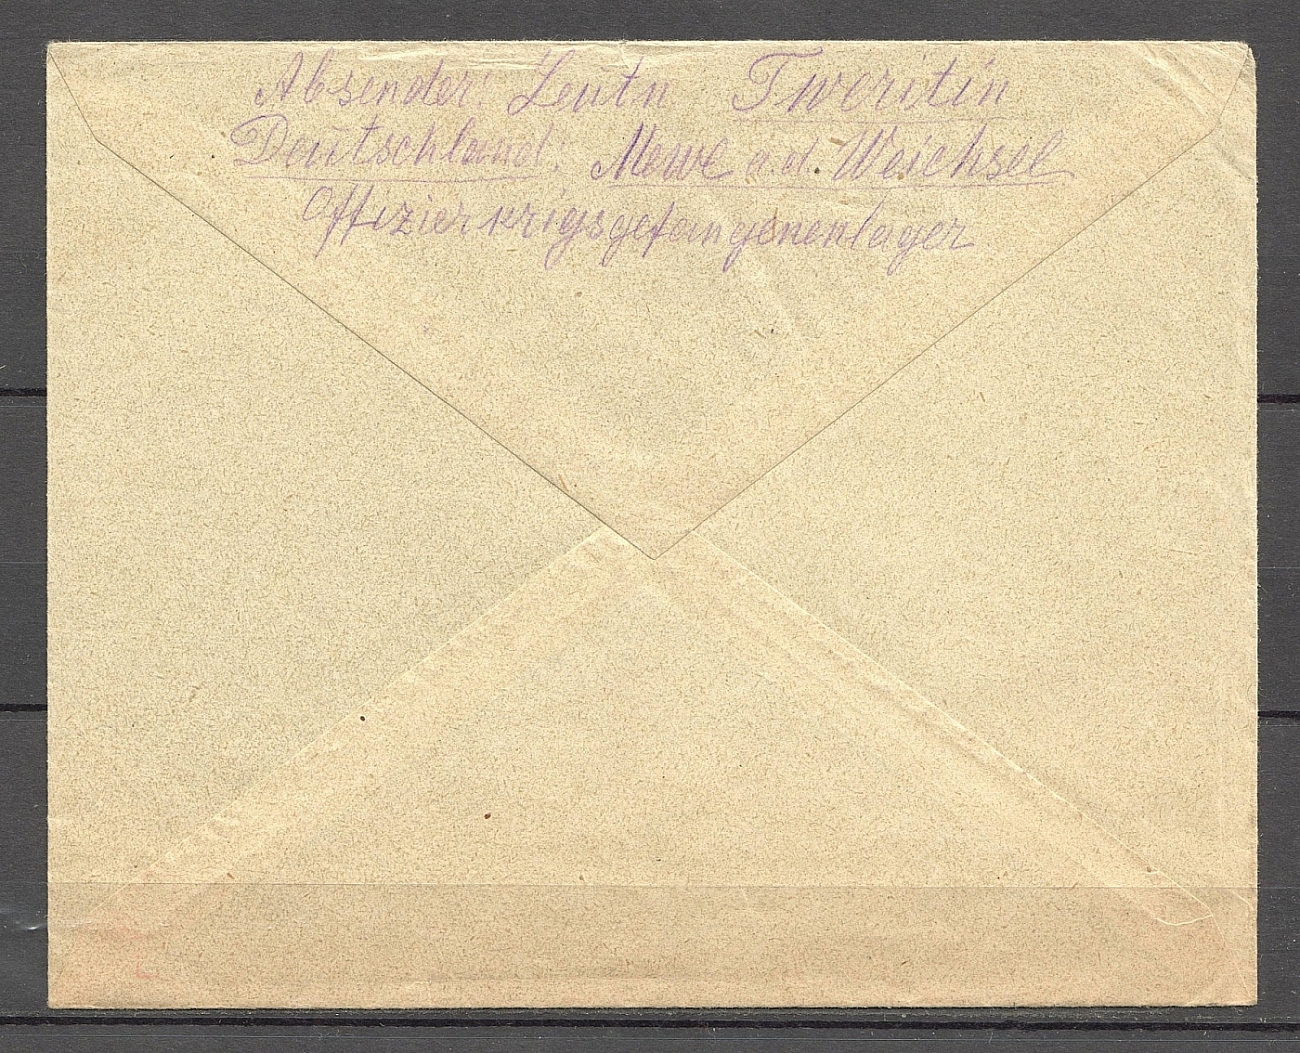 Absender: Leutn Tweritin
Deutschland: Mewe a.d. Weichsel
Offizierkrigsgefangenenlager